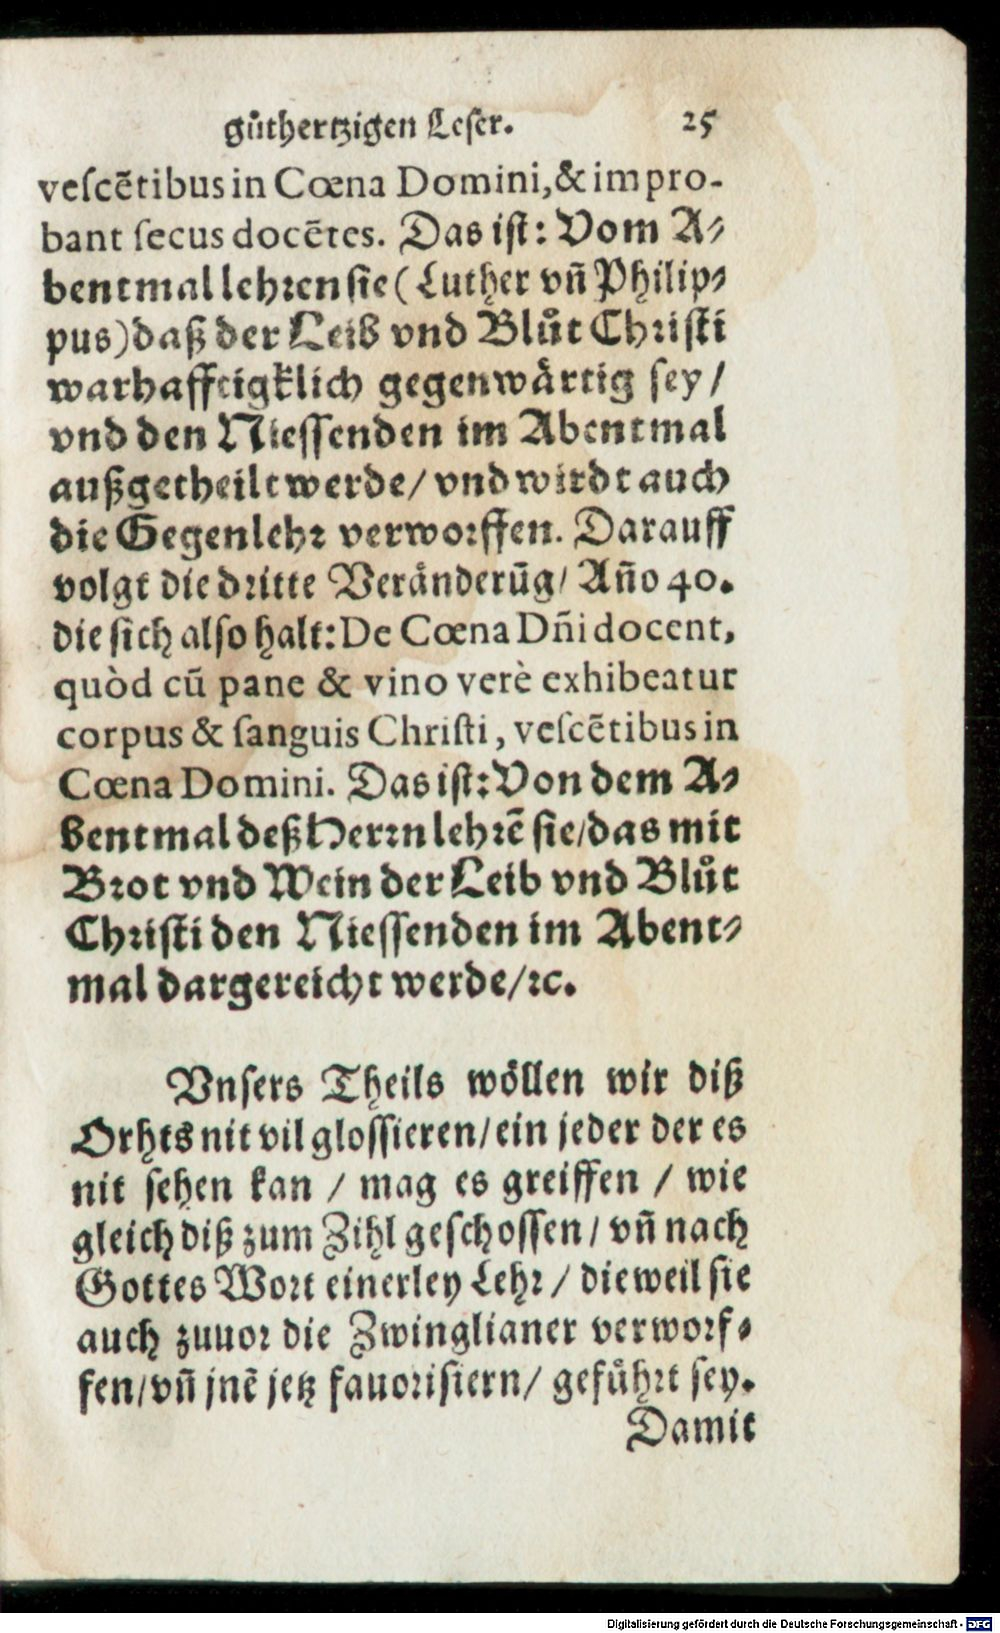 gůthertzigen Leser. 25
veſcẽtibus in Cœna Domini, & impro-
bant ſecus docẽtes. Das iſt: Vom A⸗
bentmal lehren ſie (Luther vñ Philip⸗
pus) daß der Leib vnd Blůt Chriſti
warhafftigklich gegenwärtig ſey /
vnd den Nieſſenden im Abentmal
außgetheilt werde / vnd wirdt auch
die Gegenlehr verworffen. Darauff
volgt die dritte Veränderũg / Año 40.
die ſich alſo halt: De Cœna Dñi docent,
quòd cũ pane & vino verè exhibeatur
corpus & ſanguis Chriſti, veſcẽtibus in
Cœna Domini. Das iſt: Von dem A⸗
bentmal deß Herrn lehrẽ ſie / das mit
Brot vnd Wein der Leib vnd Blůt
Chriſti den Nieſſenden im Abent⸗
mal dargereicht werde / ꝛc.
Vnſers Theils wöllen wir diß
Orhts nit vil gloſſieren / ein jeder der es
nit ſehen kan / mag es greiffen / wie
gleich diß zum Zihl geſchoſſen / vñ nach
Gottes Wort einerley Lehr / dieweil ſie
auch zuuor die Zwinglianer verworf⸗
fen / vñ jnẽ jetz fauoriſiern / geführt ſey.
Damit
Digitalisierung gefördert durch die Deutsche Forschungsgemeinschaft - DFG